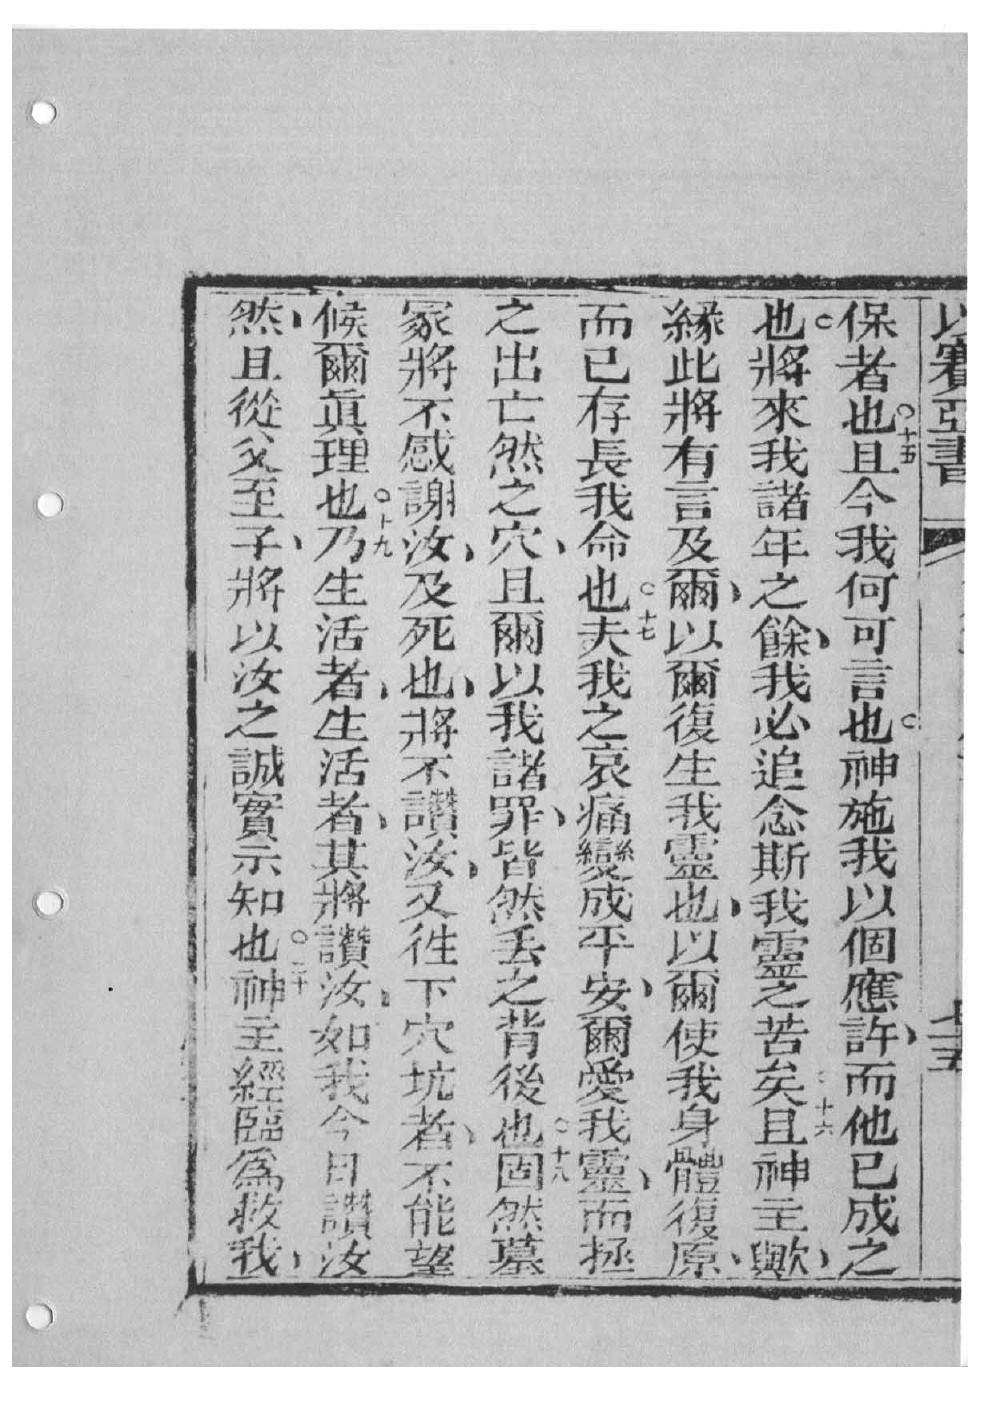 以賽亞書 七五
保者也○十五且今我何可言也○神施我以個應許、而他已成之
也○將來我諸年之餘、我必追念斯我靈之苦矣○十六且神主歟、
緣此將有言及爾、以爾復生我靈也、以爾使我身體復原、
而已存長我命也○十七夫我之哀痛變成平安、爾愛我靈、而拯
之出亡然之穴、且爾以我諸罪、皆然丢之背後也○十八固然墓
冢將不感謝汝、及死也、將不讚汝、又往下穴坑者、不能望
候爾眞理也○十九乃生活者、生活者、其將讚汝、如我今日讚汝
然、且從父至子、將以汝之誠實示知也○二十神主經臨爲救我、